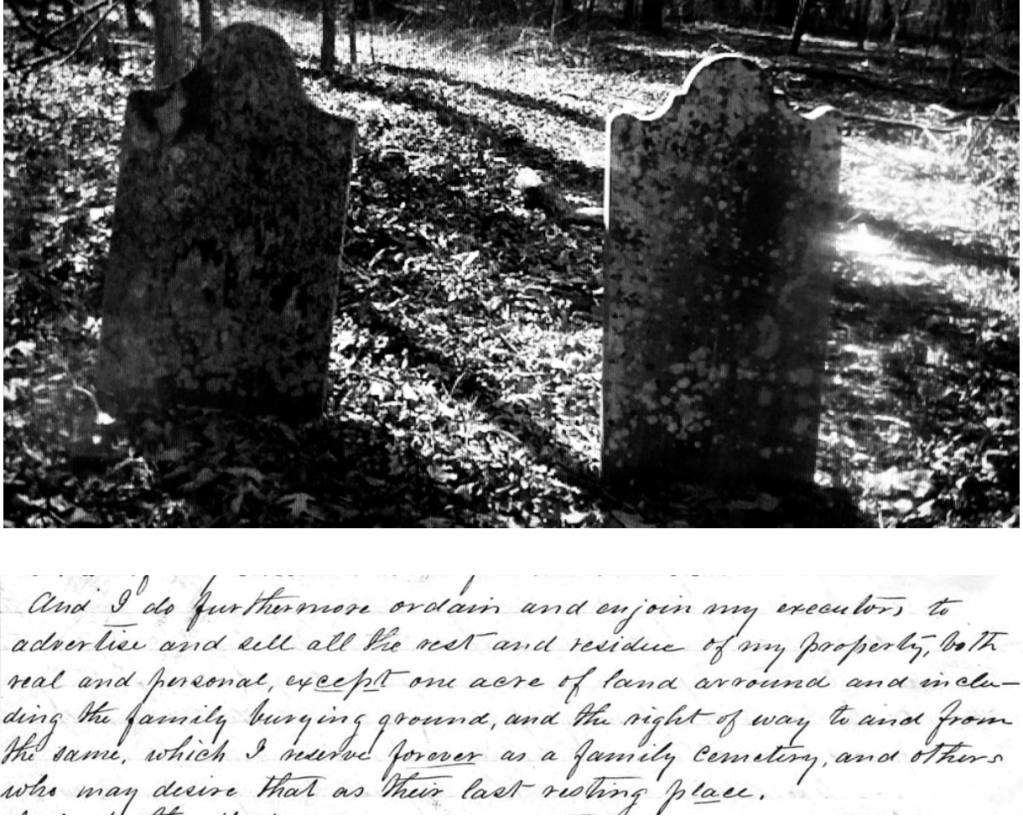 And I do furthermore ordain and enjoin my executors to
advertise and sell all the rest and residue of my property, both
real and personal, except one acre of land arround and inclu-
ding the family burying ground, and the right of way to and from
the same, which I reserve forever as a family cemetery, and others
who may desire that as their last resting place.